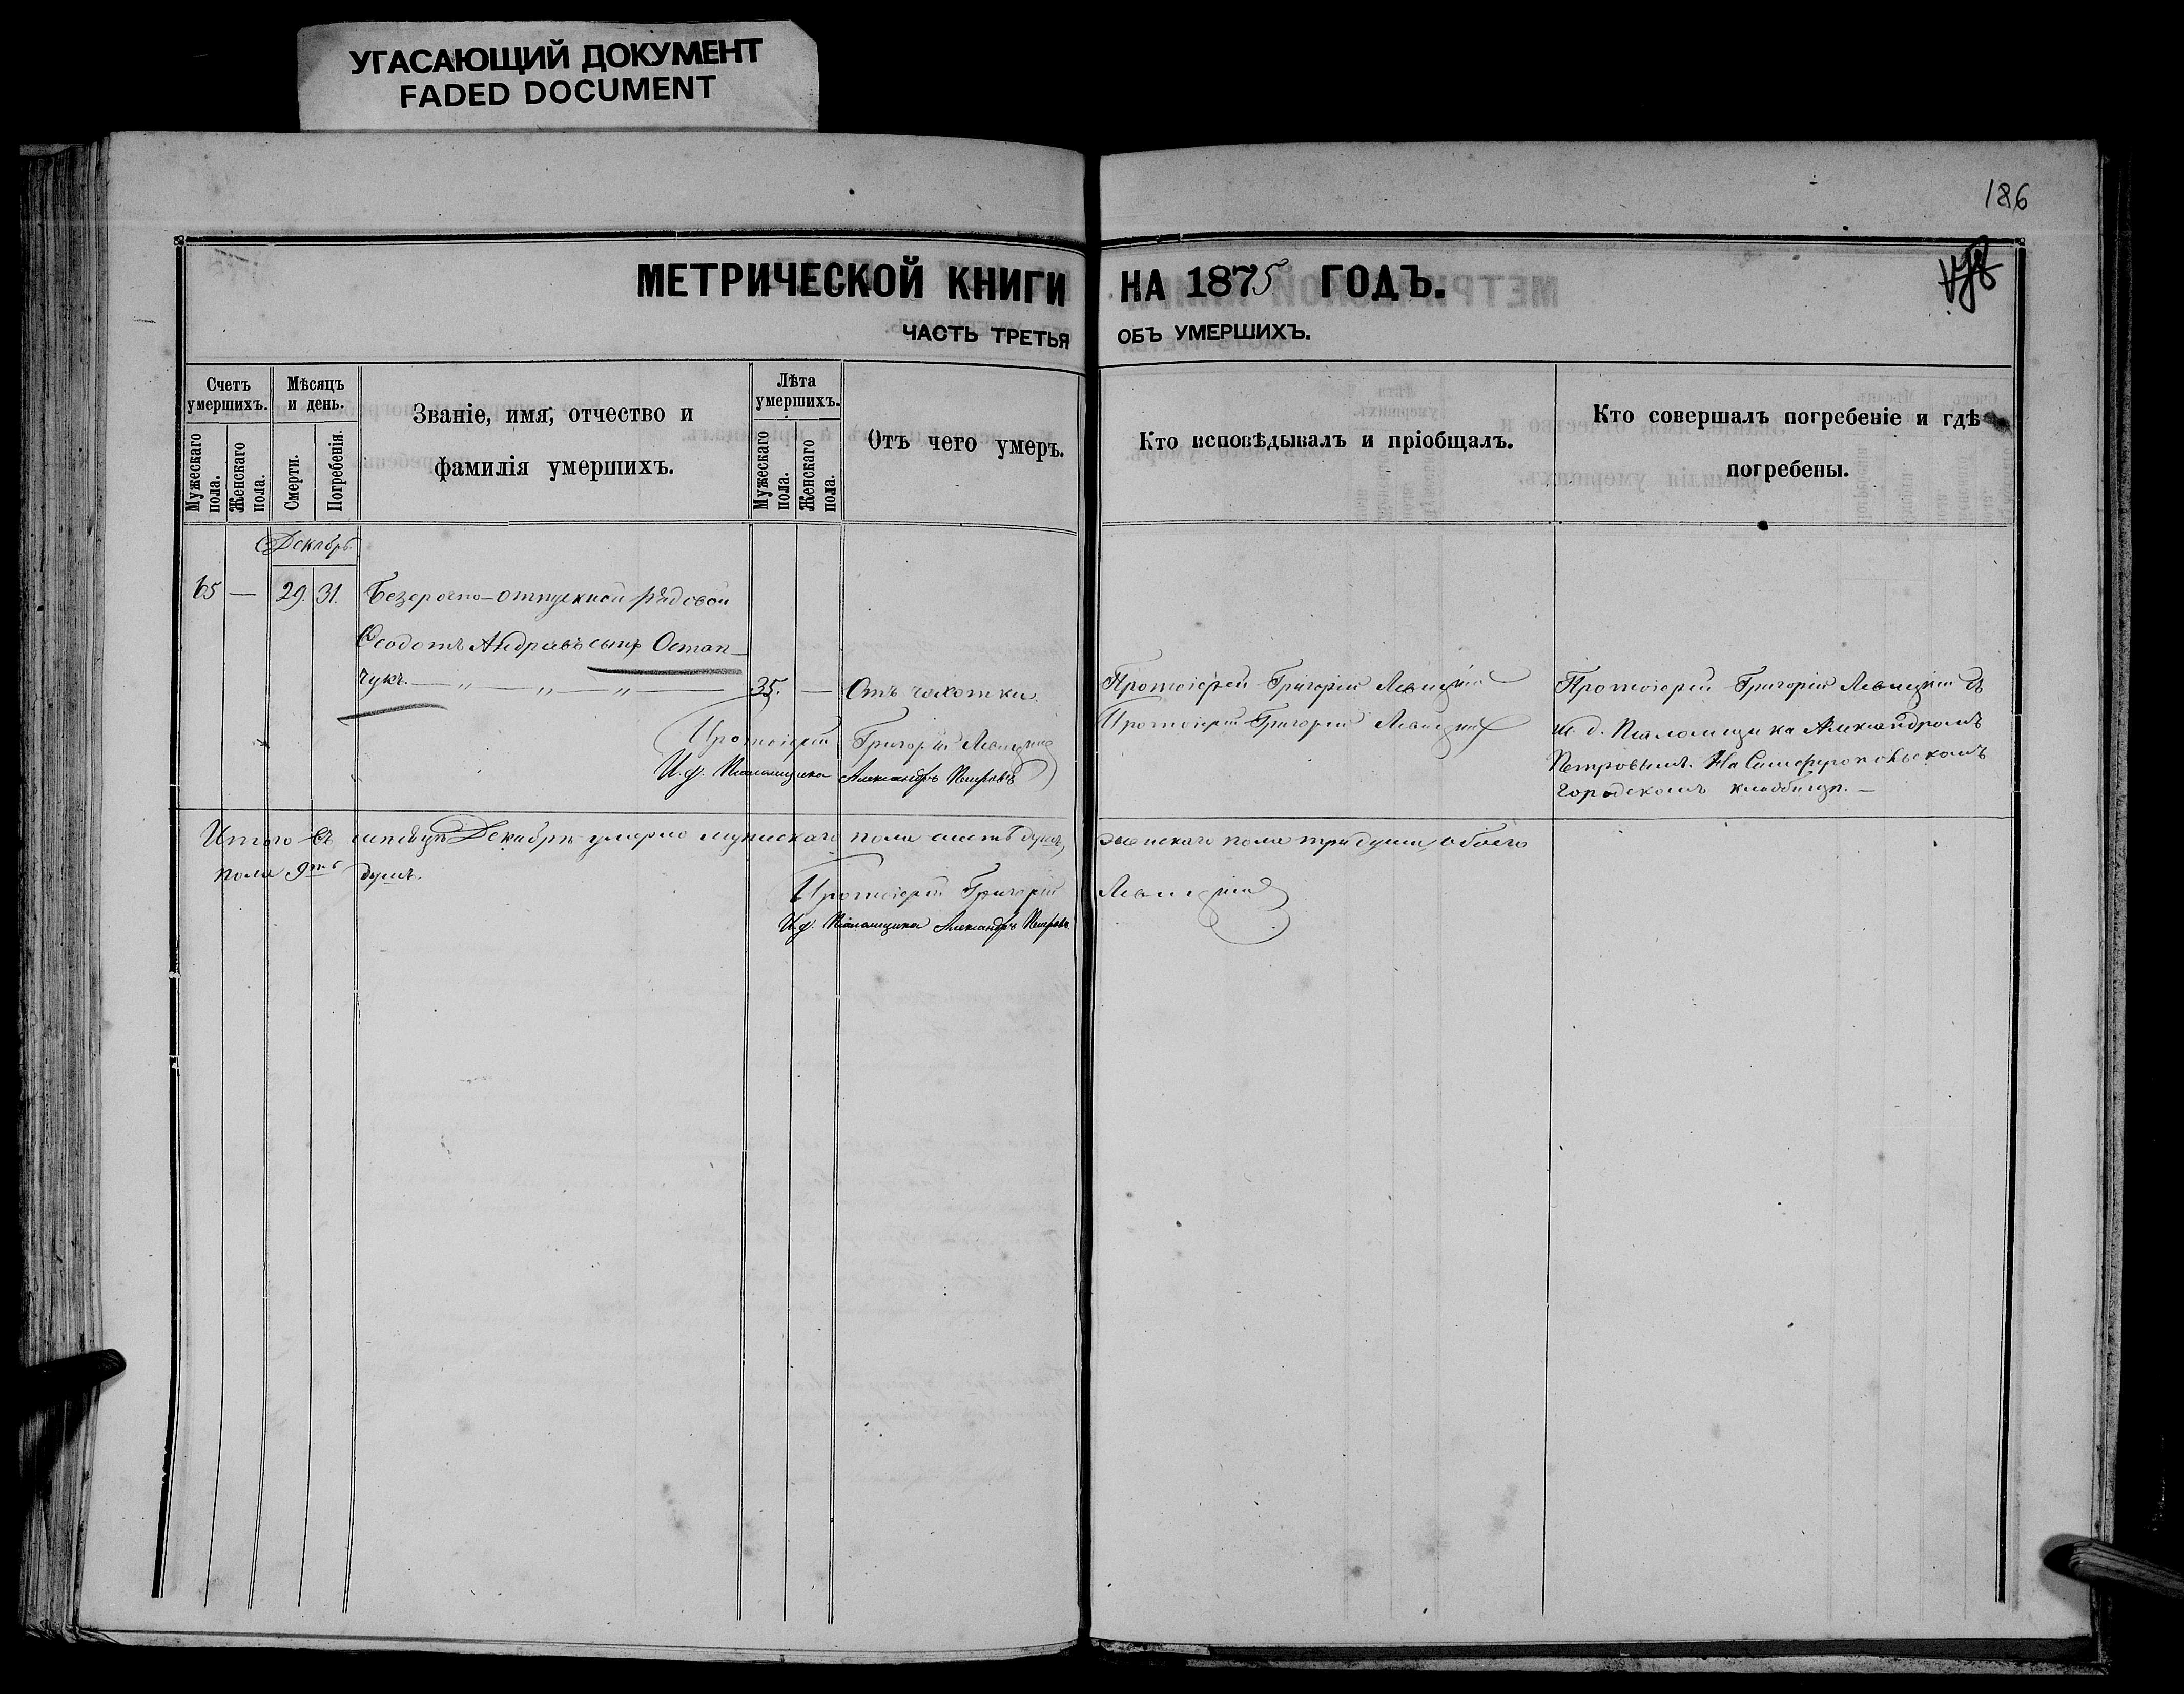 УГАСАЮЩИЙ ДОКУМЕНТ
FADED DOCUMENT
186
МЕТРИЧЕСКОЙ КНИГИ НА 1875 ГОДЪ.
ЧАСТЬ ТРЕТЬЯ ОБЪ УМЕРШИХЪ.
Счетъ умершихъ.
Мужескаго пола.
Женскаго пола.
Мѣсяцъ и день.
Смерти.
Погребенія.
Званіе, имя, отчество и
фамилія умершихъ.
Лѣта умершихъ.
Мужескаго пола.
Женскаго пола.
Отъ чего умеръ.
Кто исповѣдывалъ и пріобщалъ.
Кто совершалъ погребеніе и гдѣ
погребены.
Декабрь
65 — 29. 31. Безсрочно-отпускной рядовой
Ѳеодотъ Андреевъ сынъ Остап-
чукъ. — „ — „ — „ — 35. — Отъ чахотки.
Протоіерей Григорій Левицкій
И. д. Псаломщика Александръ Петровъ
Протоіерей Григорій Левицкій
Протоіерей Григорій Левицкій
Протоіерей Григорій Левицкій съ
и. д. Псаломщика Александромъ
Петровымъ. На Симферопольскомъ
городскомъ кладбищѣ. —
Итого въ мѣсяцѣ Декабрѣ умерло мужескаго пола шесть душъ, женскаго пола три души, обоего
пола 9ть душъ.
Протоіерей Григорій Левицкій
И. д. Псаломщика Александръ Петровъ.